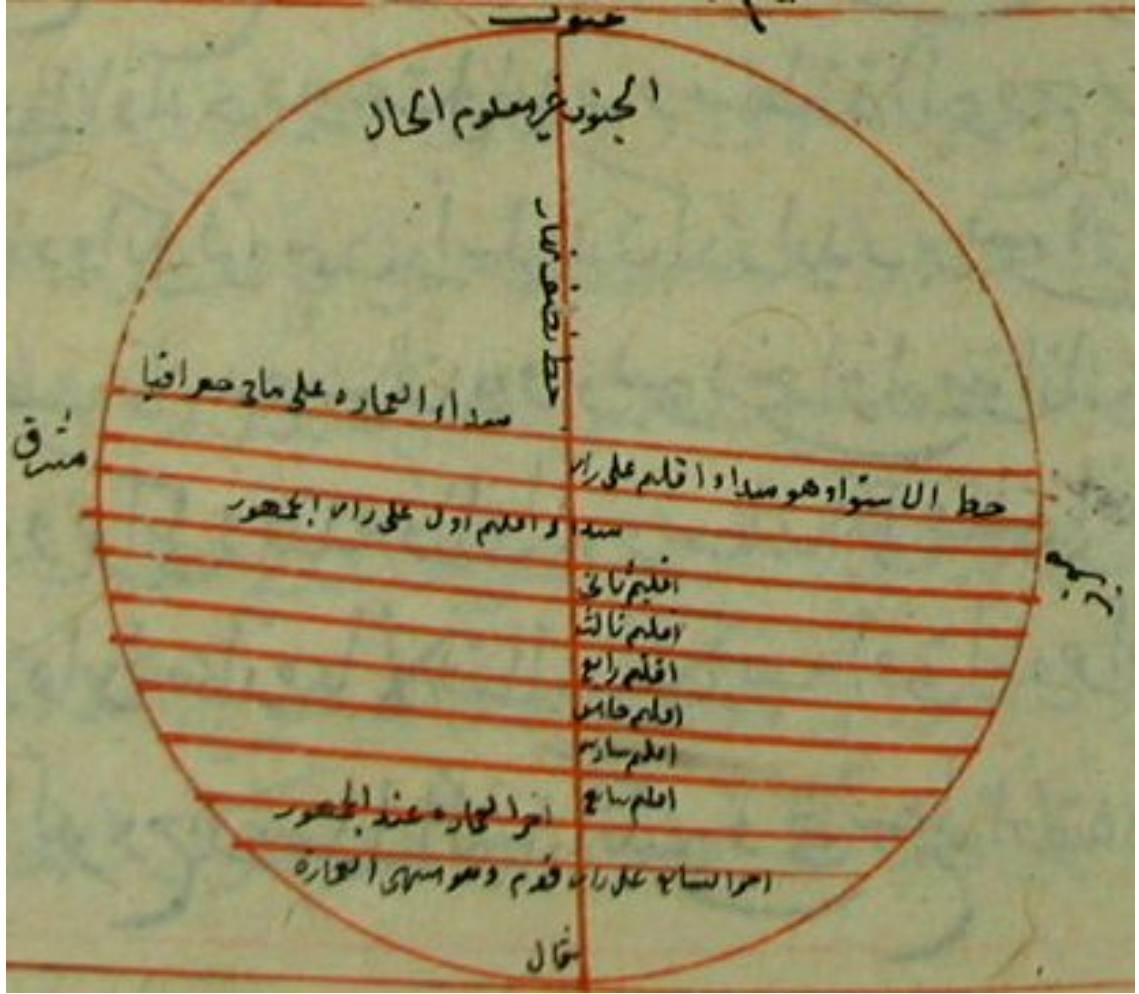 جنوب
الجنوب غير معلوم الحال
خط نصف نهار
مبداء العماره على ما في جغرافيا
مشرق
خط الاستوا وهو مبداء اقليم على راى
مبداء اقليم اول على راى الجمهور
مغرب
اقليم ثانى
اقليم ثالث
اقليم رابع
اقليم خامس
اقليم سادس
اقليم سابع
اخر العماره عند الجمهور
اخر السابع على راى قوم وهو منتهى العمارة
شمال